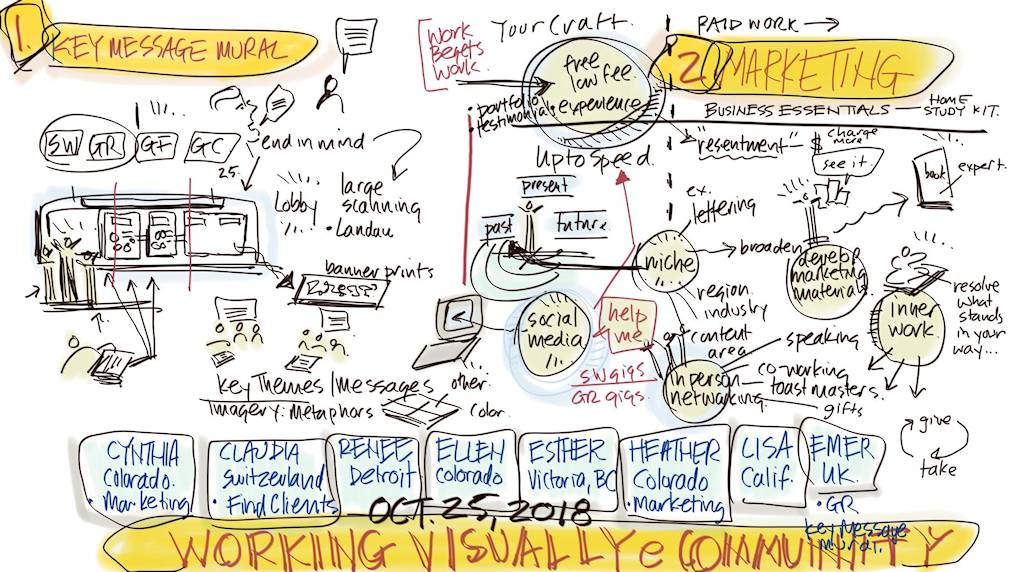 1.
KEY MESSAGE MURAL
SW
GR
GF
GC
25.
end in mind
Lobby
large
scanning
• Landau
banner prints
Key Themes/Messages
Imagery: Metaphors
other.
color.
Work
Begets
Work.
Your Craft.
free
low fee.
experience.
• portfolio
testimonial.
Up to Speed.
present
past
future.
PAID WORK →
2.
MARKETING
BUSINESS ESSENTIALS — HOME
STUDY KIT.
"resentment" — $ charge
more
see it.
book
expert.
ex.
lettering
niche
broaden
region
industry
content
area
develop
marketing
material
inner
work
resolve
what
stands
in your
way...
social
media
help
me
SW gigs
GR gigs.
in person
networking
speaking
co-working
toastmasters.
gifts
give
take
CYNTHIA
Colorado.
• Marketing
CLAUDIA
Switzerland
• Find Clients
RENEE,
Detroit
ELLEN
Colorado
ESTHER
Victoria, BC
HEATHER
Colorado
• marketing
LISA
Calif.
EMER
UK.
• GR
Key Message
Mural.
OCT. 25, 2018
WORKING VISUALLY e COMMUNITY